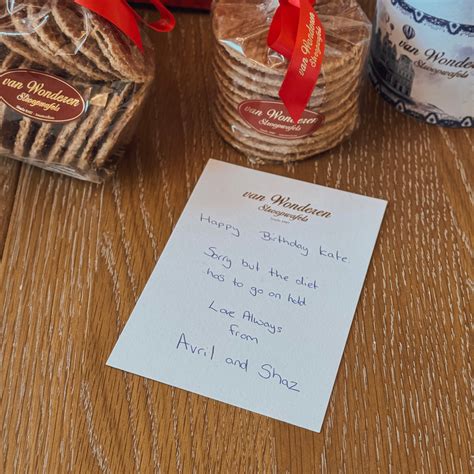 van Wonderen
Stroopwafels
van Wonderen
Stroopwafels
van Wonderen
Stroopwafels
van Wonderen
Stroopwafels
Happy Birthday Kate.
Sorry but the diet
has to go on hold
Love Always
from
Avril and Shaz